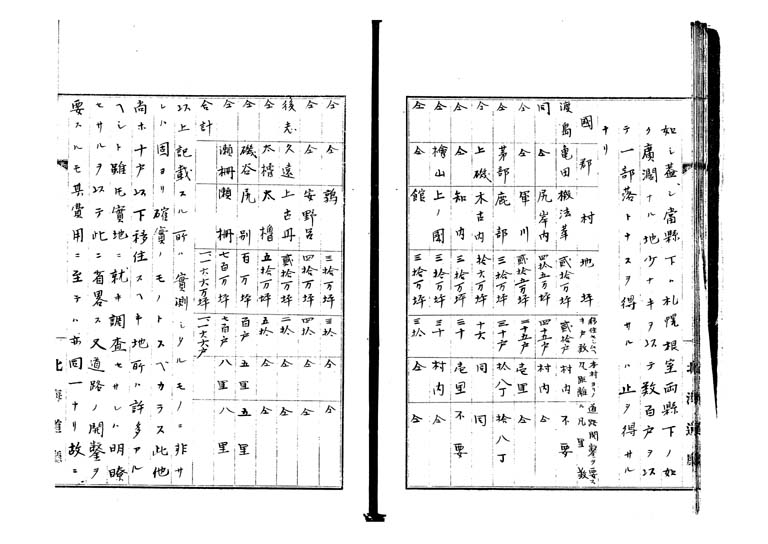 如シ蓋シ當縣下ハ札幌根室両縣下ノ如
ク廣濶ナル地少ナキヲ以テ数百戸ヲ以
テ一部落トナスヲ得サルハ止ヲ得サル
ナリ
國 郡 村 地坪 移住セシムヘキ戸数 本村ヨリ凡距離 道路開鑿ヲ要スル凡里数
渡島 亀田 椴法華 貳拾万坪 貳拾戸 村内 不要
同 仝 尻岸内 四拾五万坪 四十五戸 村内 仝
仝 仝 軍川 貳拾五万坪 二十五戸 壱里 仝
仝 茅部 鹿部 三拾万坪 三十戸 拾八丁 拾八丁
仝 上磯 木古内 拾六万坪 十六 同 同
仝 仝 知内 三拾万坪 三十 壱里 不要
仝 檜山 上ノ國 三拾万坪 三十 村内 仝
仝 仝 館 三拾万坪 三十 仝 仝
仝 仝 鶉 三拾万坪 三拾 仝 仝
仝 仝 安野呂 四拾万坪 四拾 仝 仝
後志 久遠 上古丹 貳拾万坪 二拾 仝 仝
仝 太櫓 太櫓 五拾万坪 五拾 仝 仝
仝 磯谷 尻別 百万坪 百戸 五里 五里
仝 瀬棚 瀬棚 七百万坪 七百戸 八里 八里
合計 一一六六万坪 一一六六戸
以上記載スル所ハ實測シタルモノニ非サ
レハ固ヨリ確實ノモノトスヘカラス此他
尚ホ十戸以下移住スヘキ地所ハ許多アル
ヘシト雖モ實地ニ就キ調査セサレハ明瞭
セサルヲ以テ此ニ省畧ス又道路ノ開鑿ヲ
要スルモ其費用ニ至テハ亦同一ナリ故ニ
北海道廳